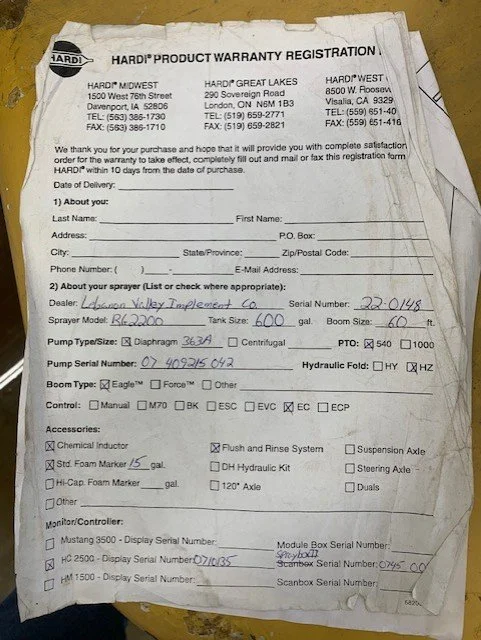 HARDI HARDI® PRODUCT WARRANTY REGISTRATION
HARDI® MIDWEST HARDI® GREAT LAKES HARDI® WEST
1500 West 76th Street 290 Sovereign Road 8500 W.
Davenport, IA 52806 London, ON N6M 1B3 Visalia, CA 9329
TEL: (563) 386-1730 TEL: (519) 659-2771 TEL: (559) 651-40
FAX: (563) 386-1710 FAX: (519) 659-2821 FAX: (559) 651-416
We thank you for your purchase and hope that it will provide you with complete satisfaction
order for the warranty to take effect, completely fill out and mail or fax this registration form
HARDI® within 10 days from the date of purchase.
Date of Delivery:
1) About you:
Last Name: First Name:
Address: P.O. Box:
City: State/Province: Zip/Postal Code:
Phone Number: ( ) - E-Mail Address:
2) About your sprayer (List or check where appropriate):
Dealer: Lebanon Valley Implement Co. Serial Number: 22-0148
Sprayer Model: RG2200 Tank Size: 600 gal. Boom Size: 60 ft.
Pump Type/Size: ☒ Diaphragm 363A ☐ Centrifugal PTO: ☒ 540 ☐ 1000
Pump Serial Number: 07 409215 042 Hydraulic Fold: ☐ HY ☒ HZ
Boom Type: ☒ Eagle™ ☐ Force™ ☐ Other
Control: ☐ Manual ☐ M70 ☐ BK ☐ ESC ☐ EVC ☒ EC ☐ ECP
Accessories:
☒ Chemical Inductor ☒ Flush and Rinse System ☐ Suspension Axle
☒ Std. Foam Marker 15 gal. ☐ DH Hydraulic Kit ☐ Steering Axle
☐ Hi-Cap. Foam Marker gal. ☐ 120" Axle ☐ Duals
☐ Other
Monitor/Controller:
☐ Mustang 3500 - Display Serial Number: Module Box Serial Number:
Spraybox II
☒ HC 2500 - Display Serial Number: 0710135 Scanbox Serial Number: 0745 00
☐ HM 1500 - Display Serial Number: Scanbox Serial Number: